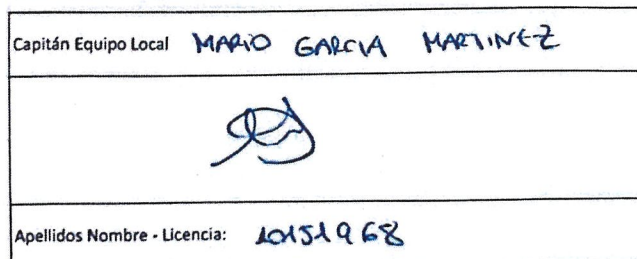 Capitán Equipo Local MARIO GARCIA MARTINEZ
Apellidos Nombre - Licencia: 10151968